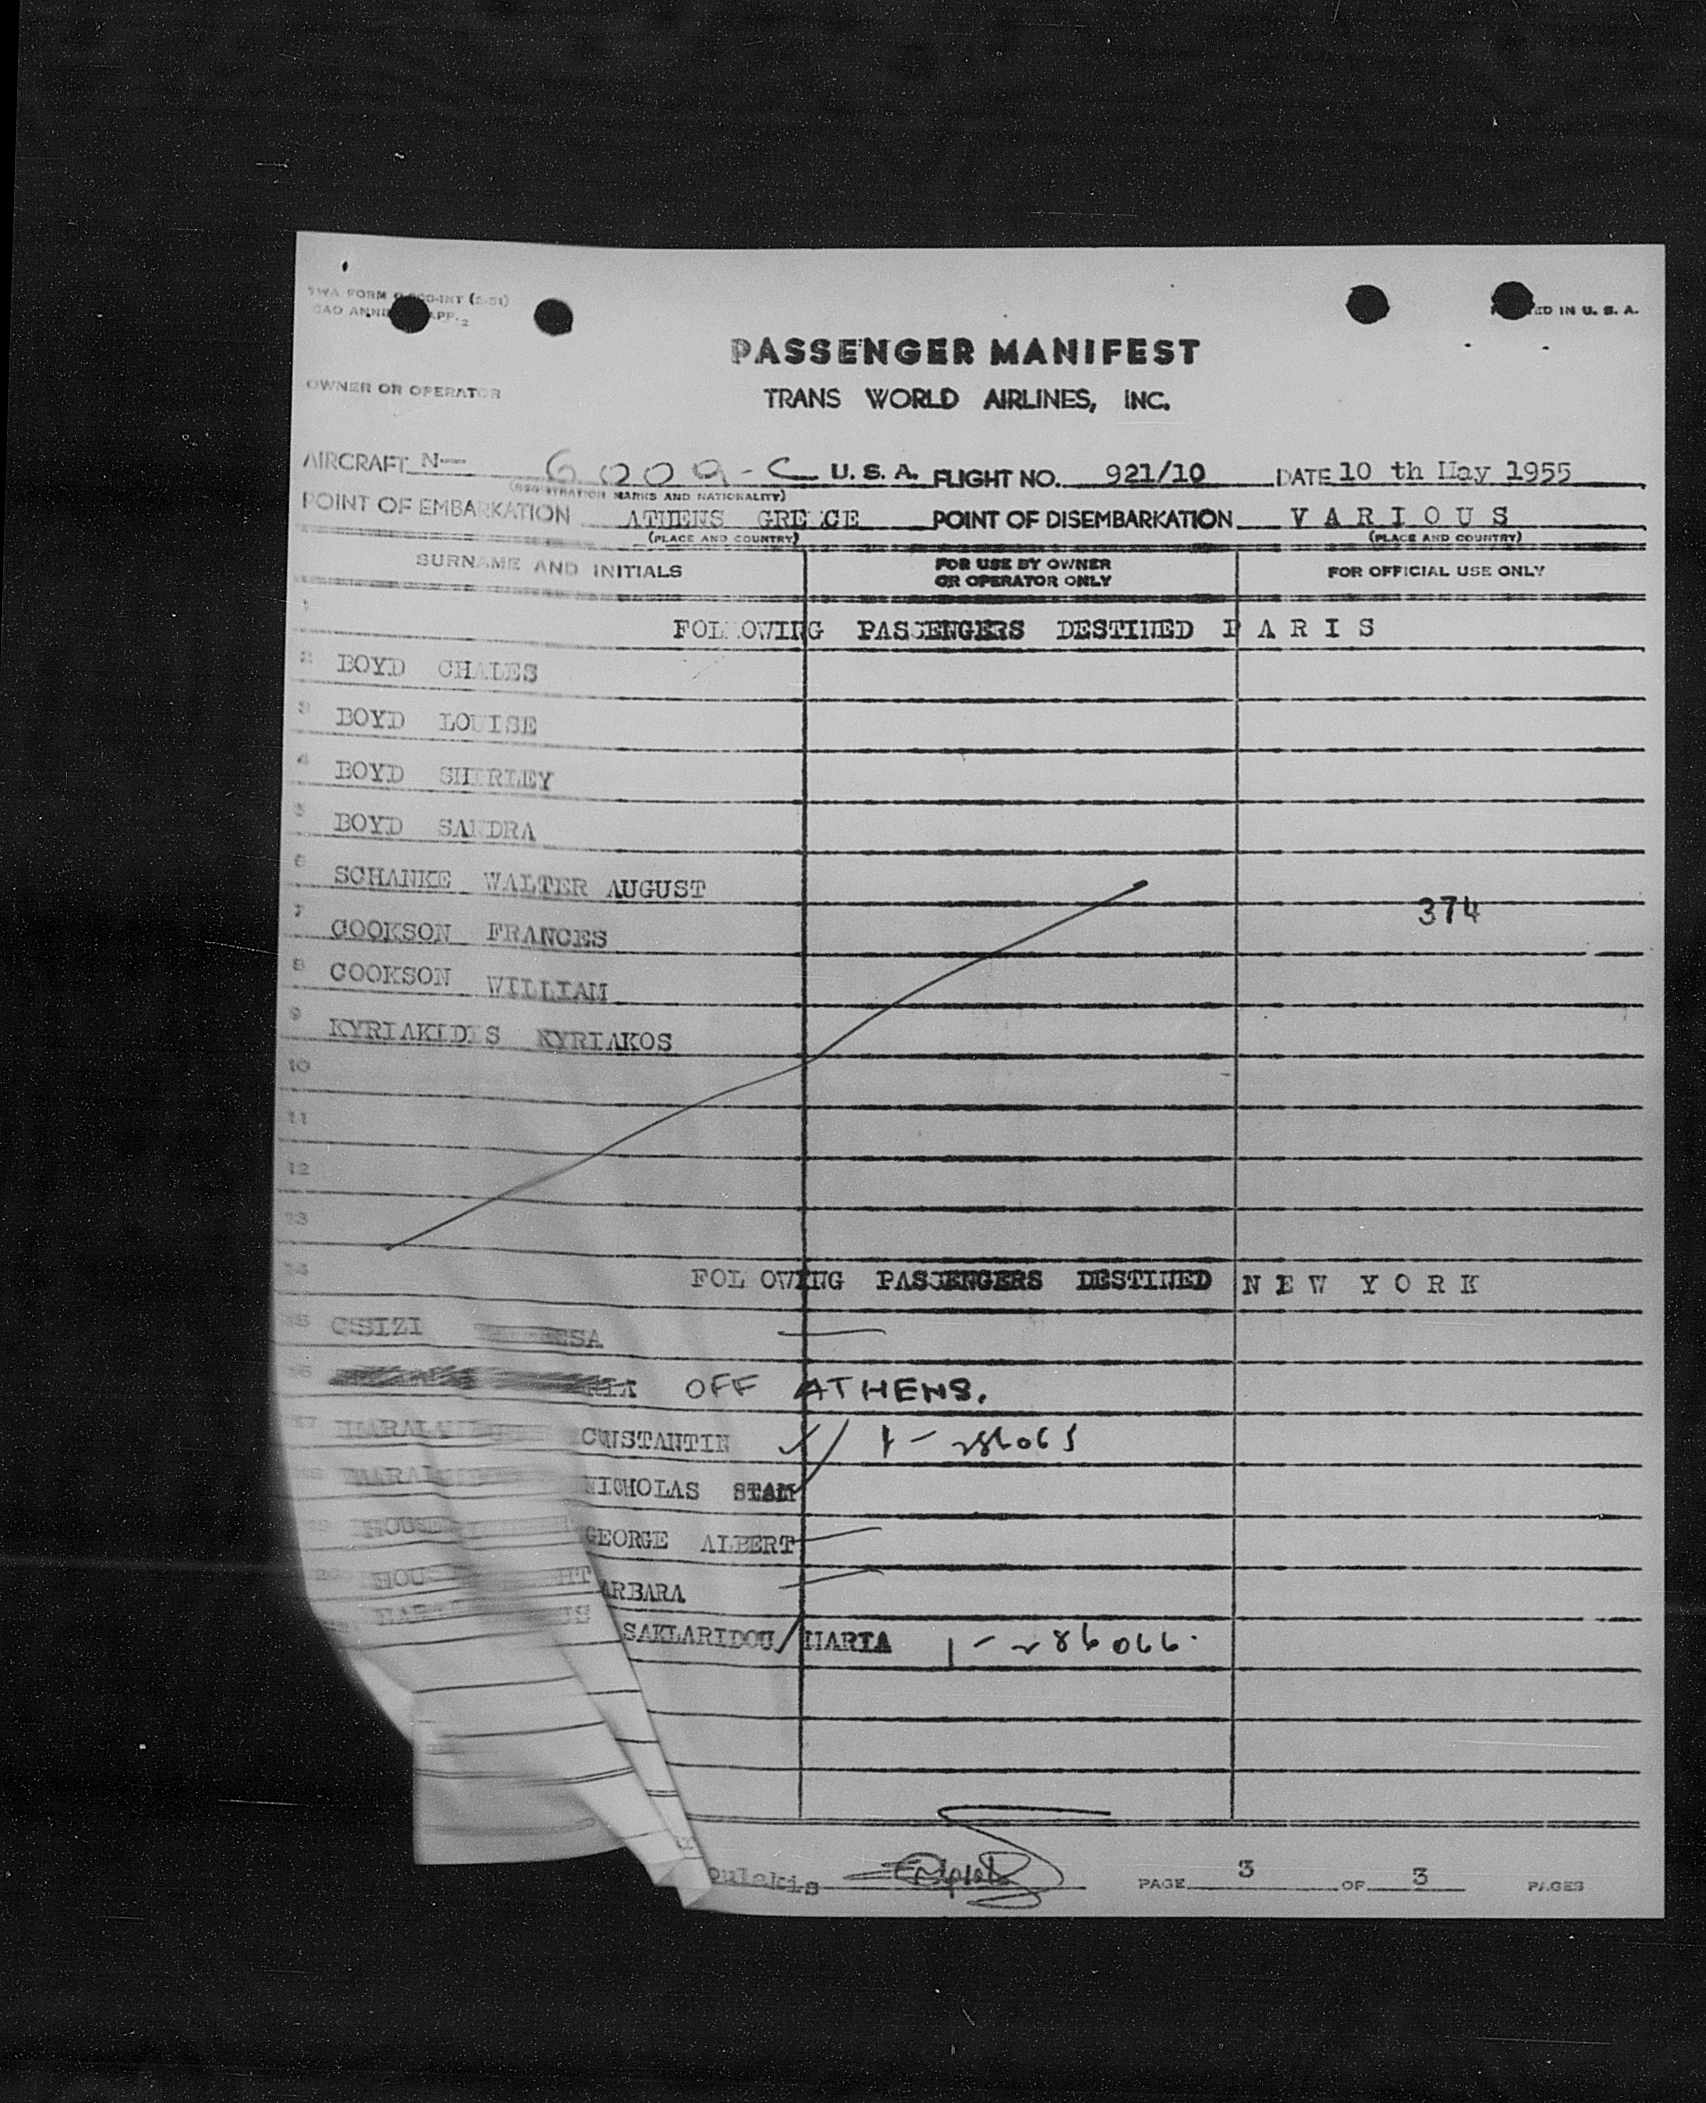 TWA FORM
PRINTED IN U. S. A.
PASSENGER MANIFEST
OWNER OR OPERATOR
TRANS WORLD AIRLINES, INC.
AIRCRAFT N— 6009-C U. S. A. FLIGHT NO. 921/10 DATE 10 th May 1955
(REGISTRATION MARKS AND NATIONALITY)
POINT OF EMBARKATION ATHENS GREECE POINT OF DISEMBARKATION V A R I O U S
(PLACE AND COUNTRY) (PLACE AND COUNTRY)
SURNAME AND INITIALS FOR USE BY OWNER OR OPERATOR ONLY FOR OFFICIAL USE ONLY
1 FOLLOWING PASSENGERS DESTINED P A R I S
2 BOYD CHALES
3 BOYD LOUISE
4 BOYD SHIRLEY
5 BOYD SANDRA
6 SCHANKE WALTER AUGUST
374
7 COOKSON FRANCES
8 COOKSON WILLIAM
9 KYRIAKIDIS KYRIAKOS
10
11
12
13
14 FOLLOWING PASSENGERS DESTINED N E W Y O R K
15
16 OFF ATHENS.
17 CONSTANTIN
18 NICHOLAS STAM
19 GEORGE ALBERT
20
SAKLARIDOU MARIA 1-286066.
PAGE 3 OF 3 PAGES